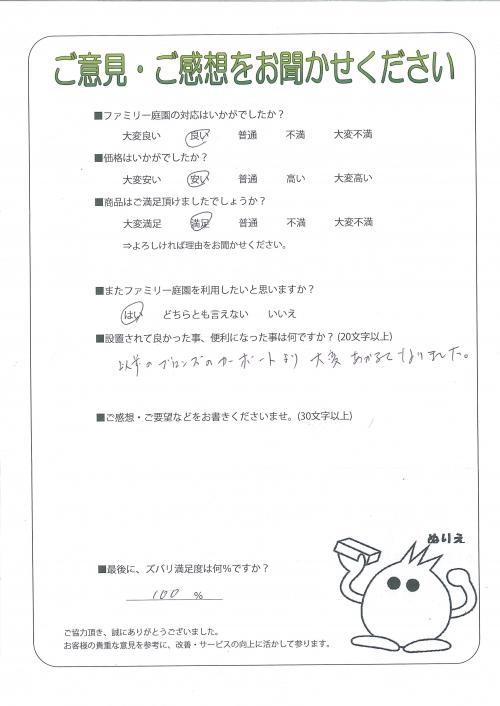 ご意見・ご感想をお聞かせください
■ファミリー庭園の対応はいかがでしたか？
大変良い 良い 普通 不満 大変不満
■価格はいかがでしたか？
大変安い 安い 普通 高い 大変高い
■商品はご満足頂けましたでしょうか？
大変満足 満足 普通 不満 大変不満
⇒よろしければ理由をお聞かせください。
■またファミリー庭園を利用したいと思いますか？
はい どちらとも言えない いいえ
■設置されて良かった事、便利になった事は何ですか？(20文字以上)
以前のブロンズのカーポートより 大変 あかるくなりました。
■ご感想・ご要望などをお書きくださいませ。(30文字以上)
ぬりえ
■最後に、ズバリ満足度は何％ですか？
100 ％
ご協力頂き、誠にありがとうございました。
お客様の貴重な意見を参考に、改善・サービスの向上に活かして参ります。